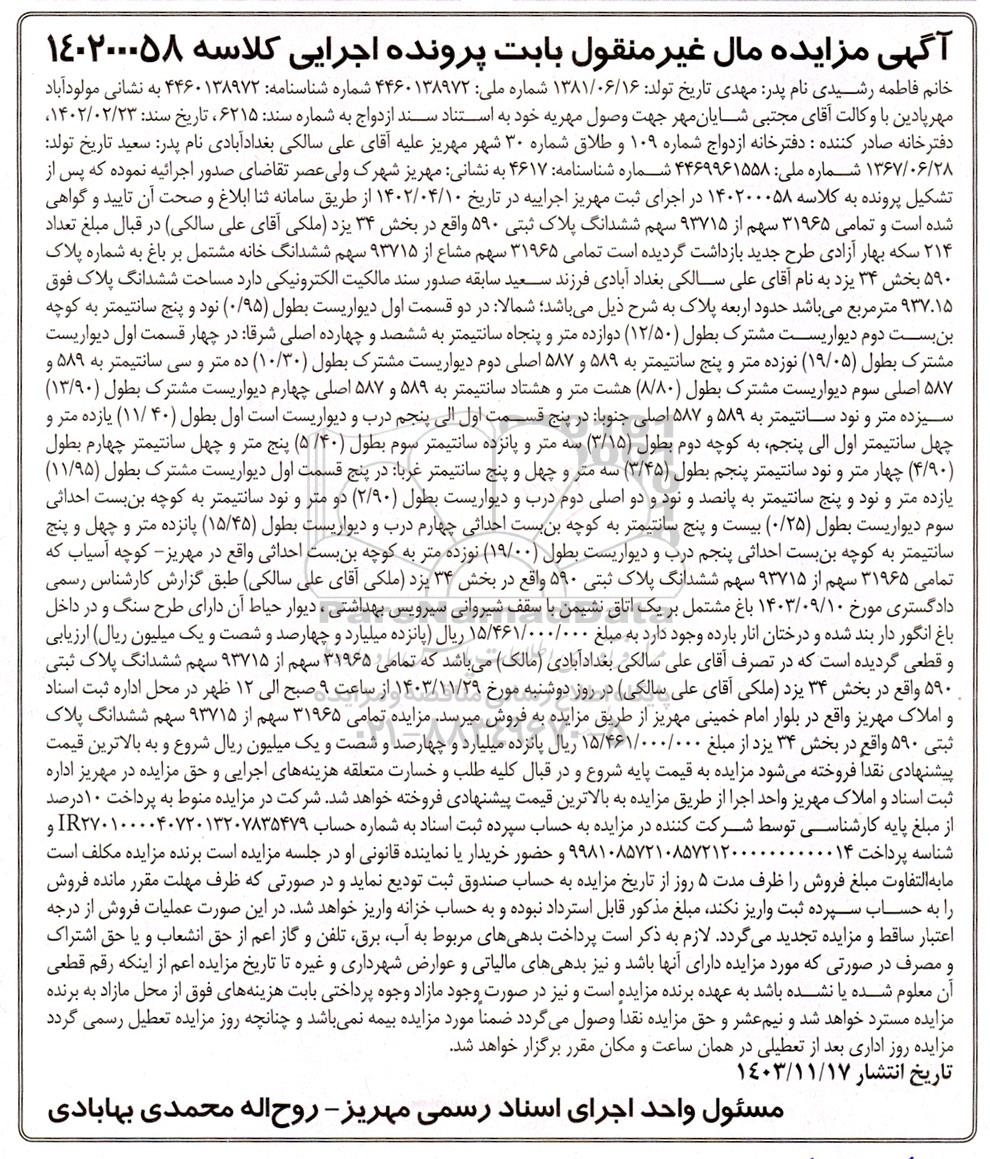 آگهی مزایده مال غیرمنقول بابت پرونده اجرایی کلاسه ۱۴۰۲۰۰۰۵۸
خانم فاطمه رشیدی نام پدر: مهدی تاریخ تولد: ۱۳۸۱/۰۶/۱۶ شماره ملی: ۴۴۶۰۱۳۸۹۷۲ شماره شناسنامه: ۴۴۶۰۱۳۸۹۷۲ به نشانی مولودآباد
مهرپادین با وکالت آقای مجتبی شایان‌مهر جهت وصول مهریه خود به استناد سند ازدواج به شماره سند: ۶۲۱۵، تاریخ سند: ۱۴۰۲/۰۲/۲۳،
دفترخانه صادر کننده : دفترخانه ازدواج شماره ۱۰۹ و طلاق شماره ۳۰ شهر مهریز علیه آقای علی سالکی بغدادآبادی نام پدر: سعید تاریخ تولد:
۱۳۶۷/۰۶/۲۸ شماره ملی: ۴۴۶۹۹۶۱۵۵۸ شماره شناسنامه: ۴۶۱۷ به نشانی: مهریز شهرک ولی‌عصر تقاضای صدور اجرائیه نموده که پس از
تشکیل پرونده به کلاسه ۱۴۰۲۰۰۰۵۸ در اجرای ثبت مهریز اجراییه در تاریخ ۱۴۰۲/۰۴/۱۰ از طریق سامانه ثنا ابلاغ و صحت آن تایید و گواهی
شده است و تمامی ۳۱۹۶۵ سهم از ۹۳۷۱۵ سهم ششدانگ پلاک ثبتی ۵۹۰ واقع در بخش ۳۴ یزد (ملکی آقای علی سالکی) در قبال مبلغ تعداد
۲۱۴ سکه بهار آزادی طرح جدید بازداشت گردیده است تمامی ۳۱۹۶۵ سهم مشاع از ۹۳۷۱۵ سهم ششدانگ خانه مشتمل بر باغ به شماره پلاک
۵۹۰ بخش ۳۴ یزد به نام آقای علی سالکی بغداد آبادی فرزند سعید سابقه صدور سند مالکیت الکترونیکی دارد مساحت ششدانگ پلاک فوق
۹۳۷.۱۵ مترمربع می‌باشد حدود اربعه پلاک به شرح ذیل می‌باشد؛ شمالا: در دو قسمت اول دیواریست بطول (۰/۹۵) نود و پنج سانتیمتر به کوچه
بن‌بست دوم دیواریست مشترک بطول (۱۲/۵۰) دوازده متر و پنجاه سانتیمتر به ششصد و چهارده اصلی شرقا: در چهار قسمت اول دیواریست
مشترک بطول (۱۹/۰۵) نوزده متر و پنج سانتیمتر به ۵۸۹ و ۵۸۷ اصلی دوم دیواریست مشترک بطول (۱۰/۳۰) ده متر و سی سانتیمتر به ۵۸۹ و
۵۸۷ اصلی سوم دیواریست مشترک بطول (۸/۸۰) هشت متر و هشتاد سانتیمتر به ۵۸۹ و ۵۸۷ اصلی چهارم دیواریست مشترک بطول (۱۳/۹۰)
سیزده متر و نود سانتیمتر به ۵۸۹ و ۵۸۷ اصلی جنوبا: در پنج قسمت اول الی پنجم درب و دیواریست است اول بطول (۴۰ /۱۱) یازده متر و
چهل سانتیمتر اول الی پنجم، به کوچه دوم بطول (۳/۱۵) سه متر و پانزده سانتیمتر سوم بطول (۴۰/ ۵) پنج متر و چهل سانتیمتر چهارم بطول
(۴/۹۰) چهار متر و نود سانتیمتر پنجم بطول (۳/۴۵) سه متر و چهل و پنج سانتیمتر غربا: در پنج قسمت اول دیواریست مشترک بطول (۱۱/۹۵)
یازده متر و نود و پنج سانتیمتر به پانصد و نود و دو اصلی دوم درب و دیواریست بطول (۲/۹۰) دو متر و نود سانتیمتر به کوچه بن‌بست احداثی
سوم دیواریست بطول (۰/۲۵) بیست و پنج سانتیمتر به کوچه بن‌بست احداثی چهارم درب و دیواریست بطول (۱۵/۴۵) پانزده متر و چهل و پنج
سانتیمتر به کوچه بن‌بست احداثی پنجم درب و دیواریست بطول (۱۹/۰۰) نوزده متر به کوچه بن‌بست احداثی واقع در مهریز- کوچه آسیاب که
تمامی ۳۱۹۶۵ سهم از ۹۳۷۱۵ سهم ششدانگ پلاک ثبتی ۵۹۰ واقع در بخش ۳۴ یزد (ملکی آقای علی سالکی) طبق گزارش کارشناس رسمی
دادگستری مورخ ۱۴۰۳/۰۹/۱۰ باغ مشتمل بر یک اتاق نشیمن با سقف شیروانی سیرویس بهداشتی ، دیوار حیاط آن دارای طرح سنگ و در داخل
باغ انگور دار بند شده و درختان انار بارده وجود دارد به مبلغ ۱۵/۴۶۱/۰۰۰/۰۰۰ ریال (پانزده میلیارد و چهارصد و شصت و یک میلیون ریال) ارزیابی
و قطعی گردیده است که در تصرف آقای علی سالکی بغدادآبادی (مالک) می‌باشد که تمامی ۳۱۹۶۵ سهم از ۹۳۷۱۵ سهم ششدانگ پلاک ثبتی
۵۹۰ واقع در بخش ۳۴ یزد (ملکی آقای علی سالکی) در روز دوشنبه مورخ ۱۴۰۳/۱۱/۲۹ از ساعت ۹ صبح الی ۱۲ ظهر در محل اداره ثبت اسناد
و املاک مهریز واقع در بلوار امام خمینی مهریز از طریق مزایده به فروش میرسد. مزایده تمامی ۳۱۹۶۵ سهم از ۹۳۷۱۵ سهم ششدانگ پلاک
ثبتی ۵۹۰ واقع در بخش ۳۴ یزد از مبلغ ۱۵/۴۶۱/۰۰۰/۰۰۰ ریال پانزده میلیارد و چهارصد و شصت و یک میلیون ریال شروع و به بالاترین قیمت
پیشنهادی نقداً فروخته می‌شود مزایده به قیمت پایه شروع و در قبال کلیه طلب و خسارت متعلقه هزینه‌های اجرایی و حق مزایده در مهریز اداره
ثبت اسناد و املاک مهریز واحد اجرا از طریق مزایده به بالاترین قیمت پیشنهادی فروخته خواهد شد. شرکت در مزایده منوط به پرداخت ۱۰درصد
از مبلغ پایه کارشناسی توسط شرکت کننده در مزایده به حساب سپرده ثبت اسناد به شماره حساب IR۲۷۰۱۰۰۰۰۴۰۷۲۰۱۳۲۰۷۸۳۵۴۷۹ و
شناسه پرداخت ۹۹۸۱۰۸۵۷۲۱۰۸۵۷۲۱۲۰۰۰۰۰۰۰۰۰۰۰۱۴ و حضور خریدار یا نماینده قانونی او در جلسه مزایده است برنده مزایده مکلف است
مابه‌التفاوت مبلغ فروش را ظرف مدت ۵ روز از تاریخ مزایده به حساب صندوق ثبت تودیع نماید و در صورتی که ظرف مهلت مقرر مانده فروش
را به حساب سپرده ثبت واریز نکند، مبلغ مذکور قابل استرداد نبوده و به حساب خزانه واریز خواهد شد. در این صورت عملیات فروش از درجه
اعتبار ساقط و مزایده تجدید می‌گردد. لازم به ذکر است پرداخت بدهی‌های مربوط به آب، برق، تلفن و گاز اعم از حق انشعاب و یا حق اشتراک
و مصرف در صورتی که مورد مزایده دارای آنها باشد و نیز بدهی‌های مالیاتی و عوارض شهرداری و غیره تا تاریخ مزایده اعم از اینکه رقم قطعی
آن معلوم شده یا نشده باشد به عهده برنده مزایده است و نیز در صورت وجود مازاد وجوه پرداختی بابت هزینه‌های فوق از محل مازاد به برنده
مزایده مسترد خواهد شد و نیم‌عشر و حق مزایده نقداً وصول می‌گردد ضمناً مورد مزایده بیمه نمی‌باشد و چنانچه روز مزایده تعطیل رسمی گردد
مزایده روز اداری بعد از تعطیلی در همان ساعت و مکان مقرر برگزار خواهد شد.
تاریخ انتشار ۱۴۰۳/۱۱/۱۷
مسئول واحد اجرای اسناد رسمی مهریز- روح‌اله محمدی بهابادی
ParsNamadData
پایگاه اطلاع رسانی مناقصه و مزایده
۰۲۱-۸۸۳۴۹۶۷۰-۵